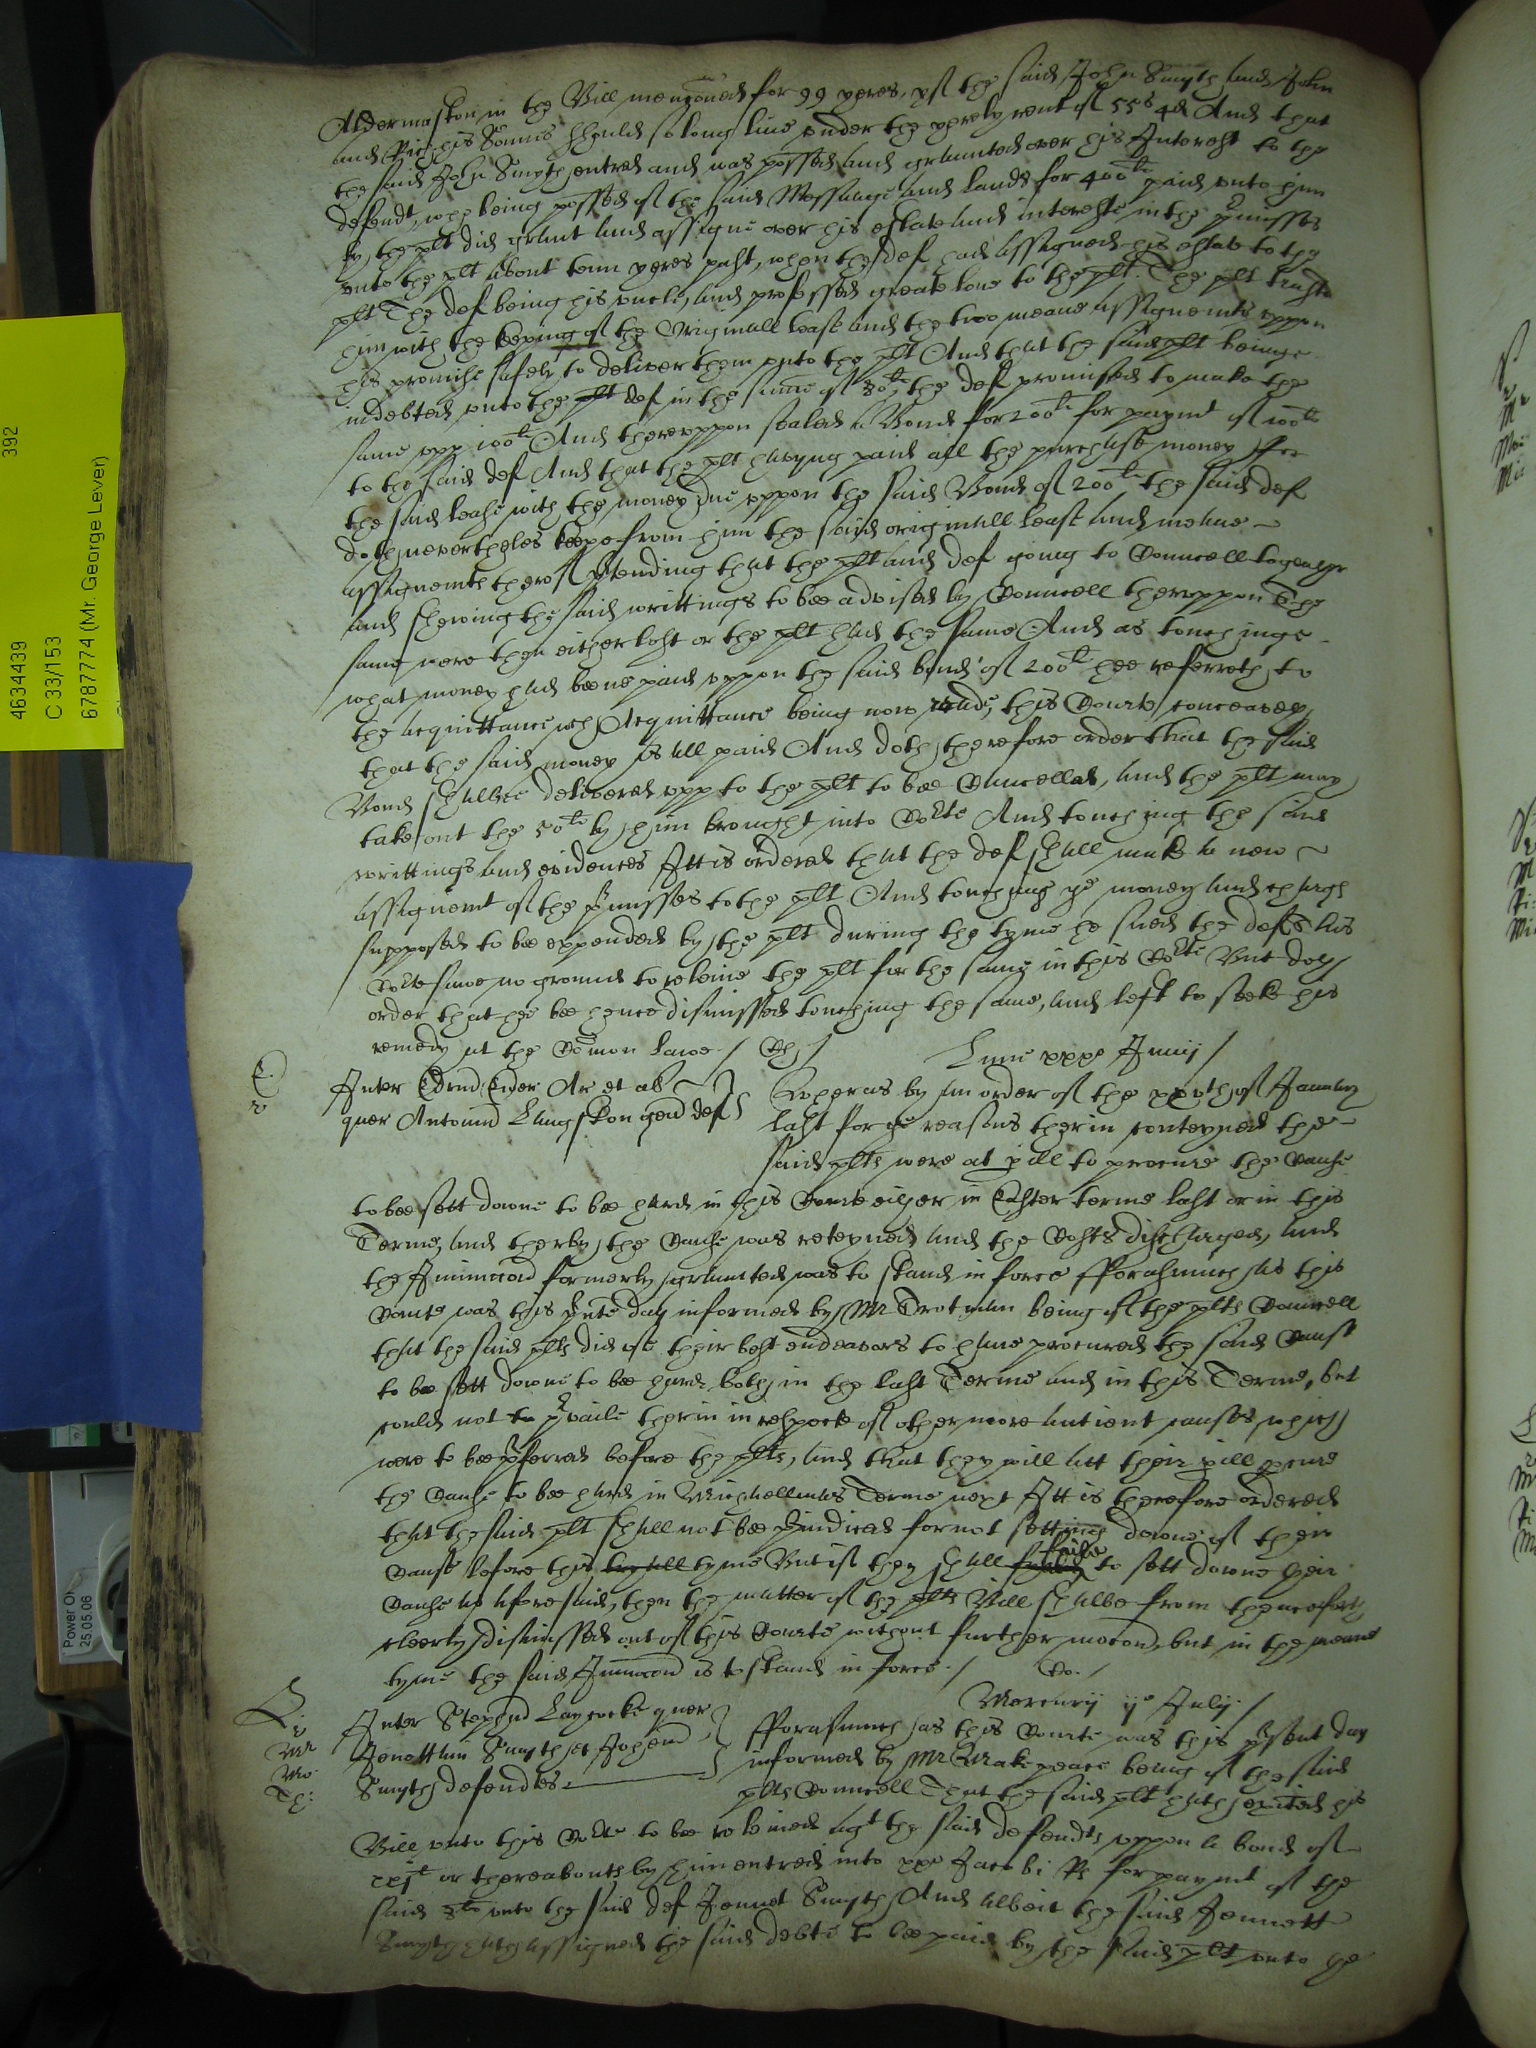 Aldermaston in the Bill menconed for 99 yeres, yf the said John Smyth and John
and Ric his Sonnes should so long live under the yerely rent of 55s 4d And that
the said John Smyth entred and was possed and graunted over his Interest to the
defendt, who being possed of the said Messuage and lands for 400li paid unto him
by the plt did graunt and assigne over his estate and intereste in the pmisses
unto the plt about tenn yeres past, when the def had assigned his estate to the
plt The def being his uncle, and professed greate love to the plt. The plt trusted
him with the keeping of the Originall lease and the two meane assignemts uppon
his promise safely to deliver them unto the plt And that the said plt beinge
indebted unto the plt def in the sume of 80li, the def promised to make the
same upp 100li And thereuppon sealed a Bond for 200li for paymt of 100li
to the said def And that the plt having paid all the purchase money for
the said lease with the money due uppon the said Bond of 200li the said def
doth nevertheles keepe from him the said originall lease and meane
assignemts therof ptending that the plt and def going to Councell togeather
and shewing the said writtings to bee advised by Councell theruppon The
same were then either lost or the plt had the same And as touchinge
what money had beene paid uppon the said bond of 200li hee referreth to
the acquittance wch Acquittance being now read, this Courte conceaveth
that the said money is all paid And doth therefore order that the said
Bond shalbee delivered upp to the plt to bee Cancelled, and the plt may
take out the 50li by him brought into Corte And touching the said
writtings and evidences Itt is ordered that the def shall make a new
assignemt of the pmisses to the plt And touching ye money and charge
supposed to bee expended by the plt during the tyme he sued the def This
Corte sawe no ground to releive the plt for the same in this Corte But doth
order that hee bee hence dismissed touching the same, and left to seeke his
remedy at the Comon lawe./
Lune xxxo Junij /
Inter Edmd Elder Ar et al
quer Antonid Langston gen def
Whereas by an order of the xxvth of January
last for ye reasons therin conteyned the
said plts were at pill to procure the Cause
to bee sett downe to bee hard in this Courte either in Ester terme last or in this
Terme, and therby the Cause was reteyned and the Costs discharged, and
the Iniunccon formerly graunted was to stand in force fforasmuch as this
Courte was this pnte day informed by Mr Trotman being of the plts Councell
that the said plts did use their best endeavors to have procured the said Cause
to bee sett downe to bee hard both in the last Terme and in this Terme, but
could not to pvaile therin in respecte of other more antient causes which
were to bee pferred before the plts, and that they will att their pill pcure
the Cause to bee hard in Michaellmas Terme next Itt is therefore ordered
that the said plt shall not bee piudiced for not setting downe of their
Cause before this tyme But if they shall faile to sett downe their
Cause as aforesaid, then the matter of the plts Bill shalbe from thenceforth
cleerly dismissed out of this Courte without further mocon, but in the meane
tyme the said Iniunccon is to stand in force./ Co./
Mercurij ijo Julij /
Inter Stephd Laycocke quer
Jenettam Smyth et Johem
Smyth defendtes
fforasmuch as this Courte was this psent day
informed by Mr Makepeace being of the said
plts Councell That the said plt hath exited his
Bill unto this Corte to bee releived agt the said defendts uppon a bond of
or thereabouts by him entred into xxo Jacobi Rs for paymt of the
said unto the said def Jennet Smyth And albeit the said Jennett
Smyth hath assigned the said debte to bee paid by the said plt unto ye
4634439 392
C 33/153
6787774 (Mr. George Lever)
Power On
25.05.06